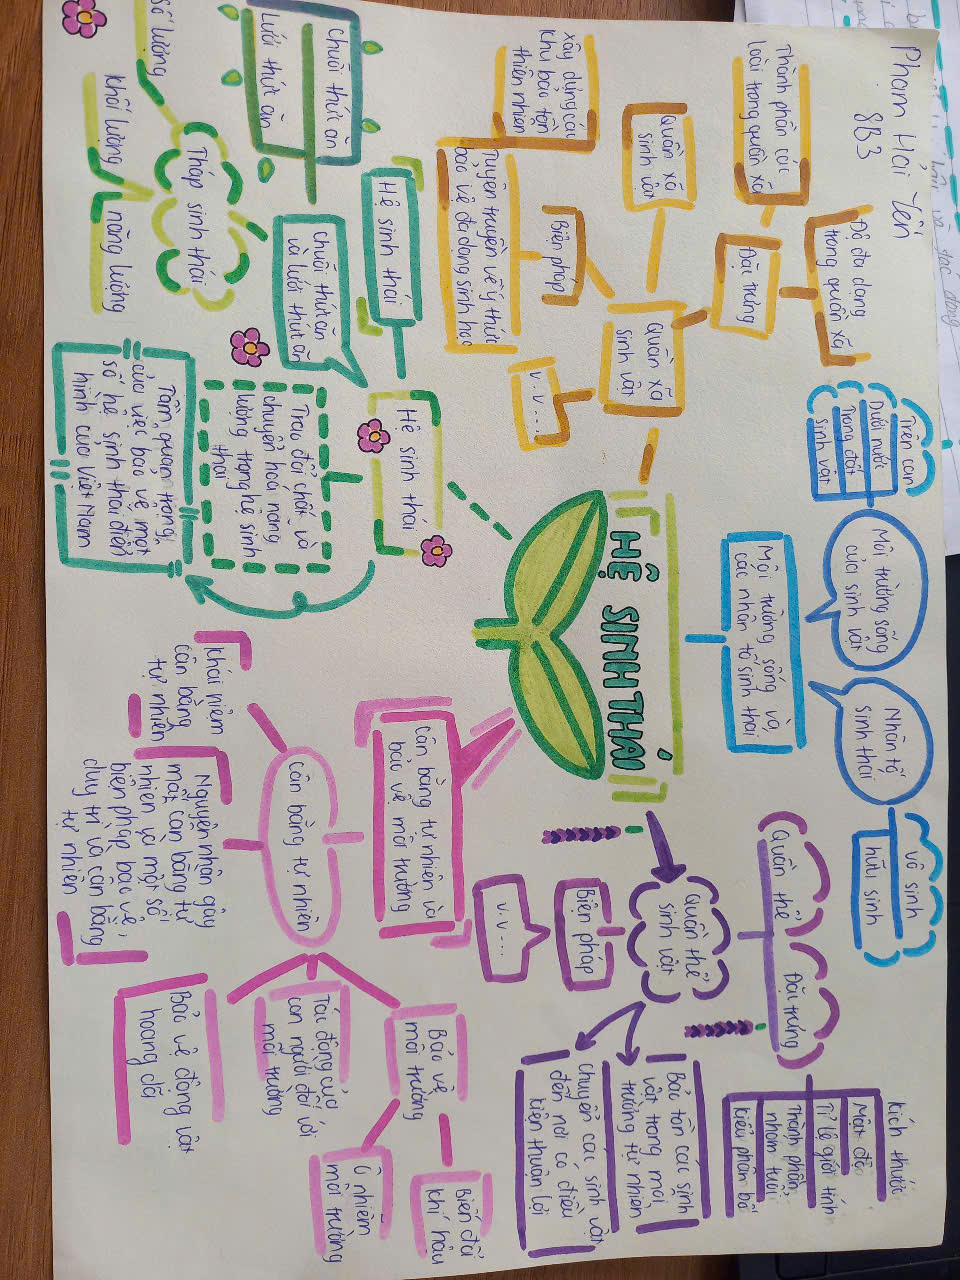 Phạm Hải Yến
8B3
HỆ SINH THÁI
Môi trường sống và
các nhân tố sinh thái
Môi trường sống
của sinh vật
Trên cạn
Dưới nước
Trong đất
sinh vật
Nhân tố
sinh thái
vô sinh
hữu sinh
Quần thể
sinh vật
Quần thể
Đặc trưng
Kích thước
Mật độ
Tỉ lệ giới tính
Thành phần
nhóm tuổi
kiểu phân bố
Biện pháp
v.v...
Bảo tồn các sinh
vật trong môi
trường tự nhiên
Chuyển các sinh vật
đến nơi có điều
kiện thuận lợi
Quần xã
sinh vật
Đặc trưng
Độ đa dạng
trong quần xã
Thành phần các
loài trong quần xã
Quần xã
sinh vật
Biện pháp
xây dựng các
khu bảo tồn
thiên nhiên
Tuyên truyền về ý thức
bảo vệ đa dạng sinh học
v.v...
Hệ sinh thái
Hệ sinh thái
Chuỗi thức ăn
và lưới thức ăn
Chuỗi thức ăn
Lưới thức ăn
Tháp sinh thái
Số lượng
khối lượng
năng lượng
Trao đổi chất và
chuyển hoá năng
lượng trong hệ sinh
thái
Tầm quan trọng
của việc bảo vệ một
số hệ sinh thái điển
hình của Việt Nam
Cân bằng tự nhiên và
bảo vệ môi trường
cân bằng tự nhiên
khái niệm
cân bằng
tự nhiên
Nguyên nhân gây
mất cân bằng tự
nhiên và một số
biện pháp bảo vệ,
duy trì và cân bằng
tự nhiên
Bảo vệ
môi trường
Biến đổi
khí hậu
Ô nhiễm
môi trường
Tác động của
con người đối với
môi trường
Bảo vệ động vật
hoang dã